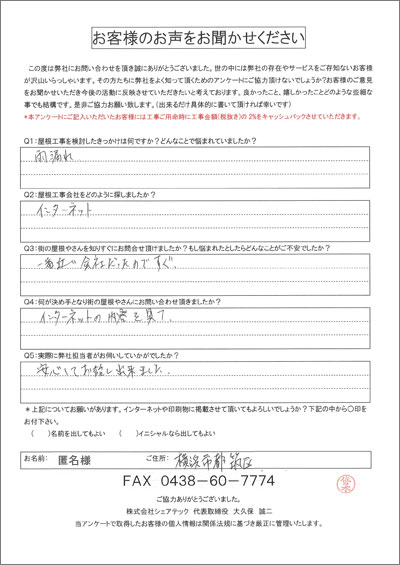 お客様のお声をお聞かせください
この度は弊社にお問い合わせを頂き誠にありがとうございました。世の中には弊社の存在やサービスをご存知ないお客様
が沢山いらっしゃいます。その方たちに弊社をよく知って頂くためのアンケートにご協力頂けないでしょうか？お客様のご意見
をお聞かせいただき今後の活動に反映させていただきたいと考えております。良かったこと、嬉しかったことどのような些細な
事でも結構です。是非ご協力お願い致します。（出来るだけ具体的に書いて頂ければ幸いです）
*本アンケートにご記入いただいたお客様には工事ご用命時に工事金額（税抜き）の 2%をキャッシュバックさせていただきます。
Q1：屋根工事を検討したきっかけは何ですか？どんなことで悩まれていましたか？
雨漏れ
Q2：屋根工事会社をどのように探しましたか？
インターネット
Q3：街の屋根やさんを知りすぐにお問合せ頂けましたか？もし悩まれたとしたらどんなことがご不安でしたか？
一番近い会社だったのですぐ。
Q4：何が決め手となり街の屋根やさんにお問い合わせ頂きましたか？
インターネットの内容を見て。
Q5：実際に弊社担当者がお伺いしていかがでしたか？
安心してお話し出来ました。
*上記についてお願いがあります。インターネットや印刷物に掲載させて頂いてもよろしいでしょうか？下記の中から〇印を
お付け下さい。
（　）名前を出してもよい　（　）イニシャルなら出してもよい
お名前: 匿名様 ご住所: 横浜市都筑区
FAX 0438-60-7774
ご協力ありがとうございました。
株式会社シェアテック 代表取締役 大久保 誠二
当アンケートで取得したお客様の個人情報は関係法規に基づき厳正に管理いたします。